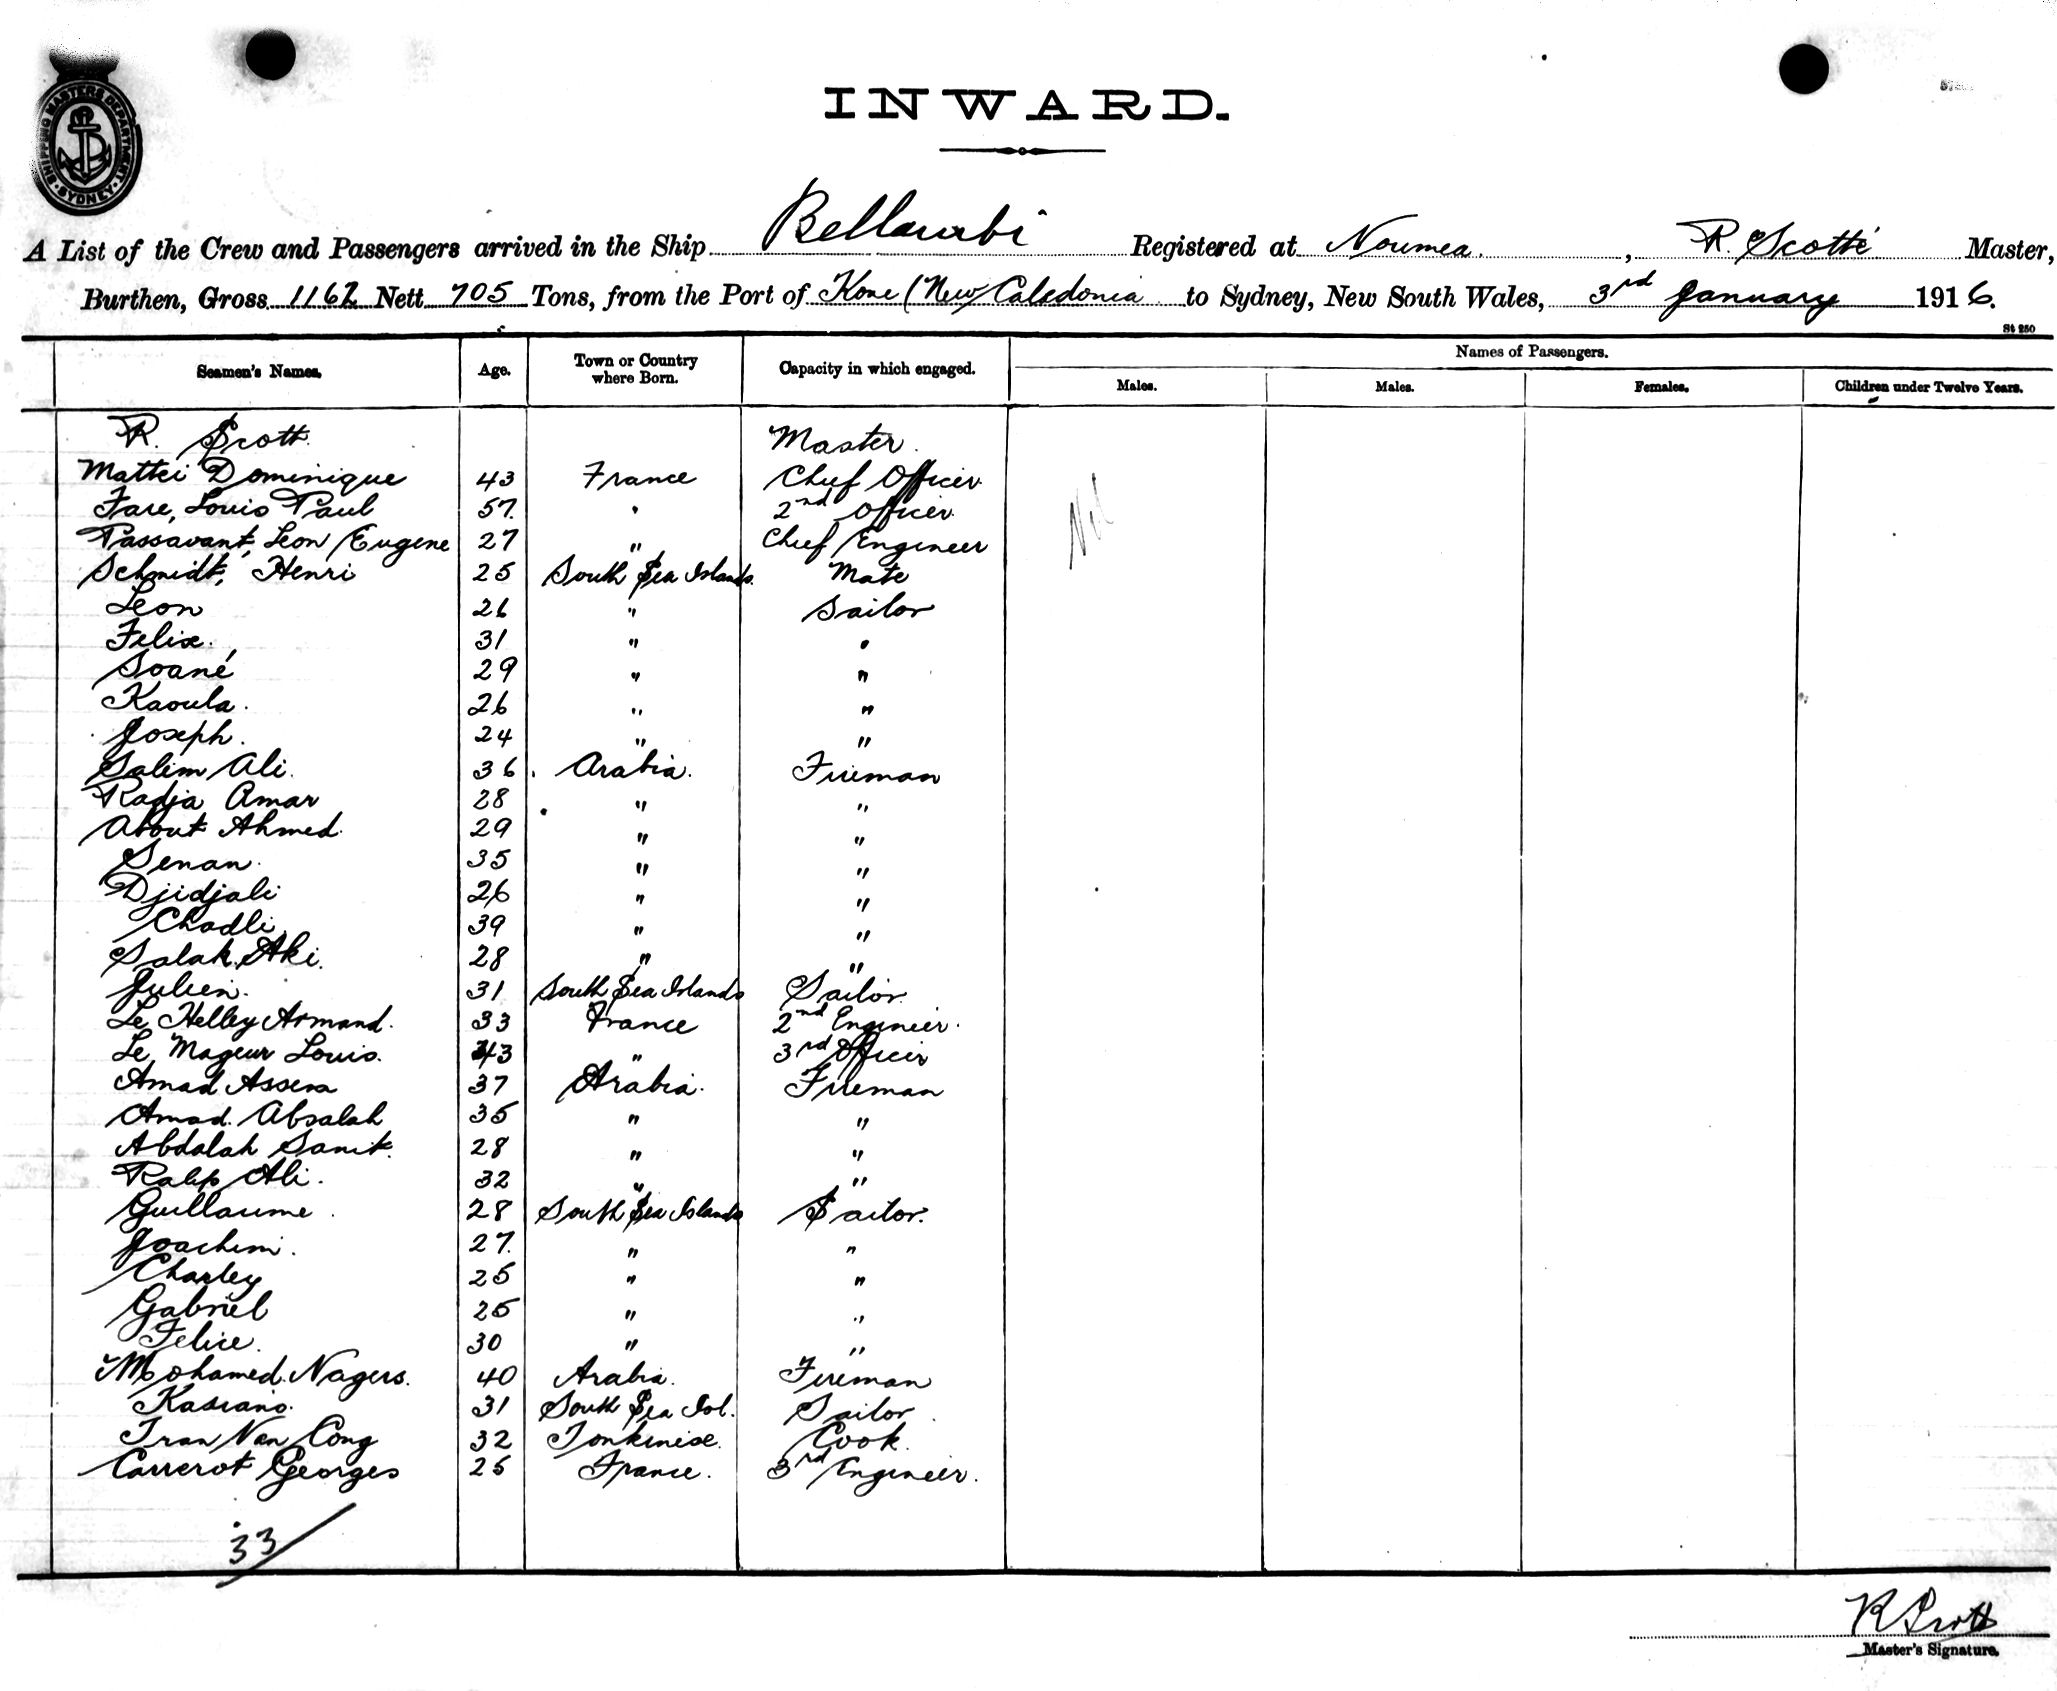 SHIPPING MASTERS DEPARTMENT · SYDNEY ·
INWARD.
A List of the Crew and Passengers arrived in the Ship Bellambi Registered at Noumea, R. Scott Master,
Burthen, Gross 1162 Nett 705 Tons, from the Port of Kone (New Caledonia to Sydney, New South Wales, 3rd January 1916.
St 250
Seamen's Names. Age. Town or Country where Born. Capacity in which engaged. Names of Passengers.
Males. Males. Females. Children under Twelve Years.
R. Scott Master
Mattei Dominique 43 France Chief Officer
Fare, Louis Paul 57 " 2nd Officer
Passavant, Leon Eugene 27 " Chief Engineer
Schmidt, Henri 25 South Sea Islands Mate
Leon 26 " Sailor
Felix 31 " "
Soané 29 " "
Kaoula 26 " "
Joseph 24 " "
Salim Ali 36 Arabia Fireman
Radja Amar 28 " "
About Ahmed 29 " "
Senan 35 " "
Djidjali 26 " "
Chadli 39 " "
Salah Aki 28 " "
Julien 31 South Sea Islands Sailor
Le Helley Armand 33 France 2nd Engineer
Le Mageur Louis 43 " 3rd Officer
Amad Assen 37 Arabia Fireman
Amad Absalah 35 " "
Abdalah Sanit 28 " "
Ralip Ali 32 " "
Guillaume 28 South Sea Islands Sailor
Joachim 27 " "
Charley 25 " "
Gabriel 25 " "
Felice 30 " "
Mohamed Nagers 40 Arabia Fireman
Kasiano 31 South Sea Isl. Sailor
Tran Van Cong 32 Tonkinese Cook
Carrerot Georges 25 France 3rd Engineer
Nil
33
R Scott
Master's Signature.